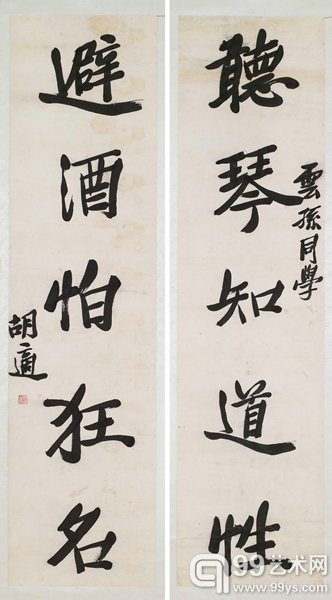 聽琴知道性
雲孫同學
避酒怕狂名
胡適
99艺术网
www.99ys.com